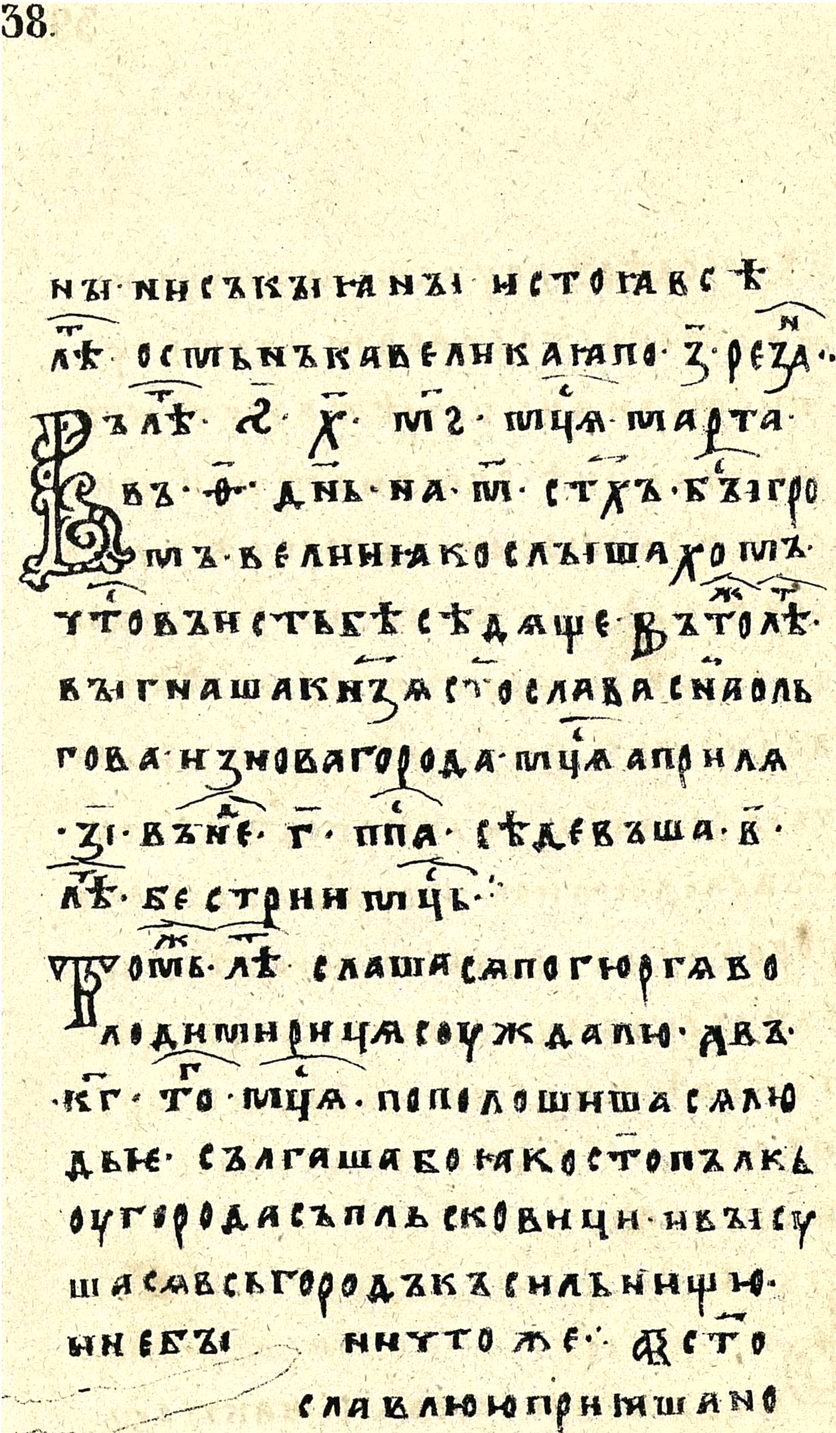 38.
нꙑ· ни съ кꙑꙗнꙑ· и стоꙗ всѣ
лѣⷮ· осмьнъка великаꙗ по· з҃· рѣзаⷩ·:·
Въ лѣⷮ· ҂ѕ҃· х҃· м҃ѕ· мцⷭ҇ѧ· марта·
въ· ѳ҃· дн҃ь· на· м҃· ст҃хъ· бꙑⷭ҇ гро
мъ· велии ꙗко слꙑшахомъ·
чтⷭ҇о въ истьбѣ сѣдѧще· Въ тоⷤ лѣⷮ·
вꙑгнаша кнѧз҃ѧ ст҃ослава сн҃а оль
гова· из новагорода· мцⷭ҇ѧ априлѧ
·з҃і· въ неⷣ· г҃· ппⷭ҇а· сѣдевъша· в҃·
лѣⷮ· бес трии мцⷭ҇ь·:·
Томь·ⷤ лѣⷮ· слашасѧ по гюргѧ во
лодимирицѧ соуждалю· А въ·
·к҃г· тогⷪ· мцⷭ҇ѧ· пополошишасѧ лю
дьѥ· сългаша бо ꙗко ст҃опълкъ
оу города съ пльсковици· и вꙑсу
шасѧ всь городъ къ сильнищю·
ы не бꙑ ничтоже·:· А ст҃о
славлюю приꙗша но